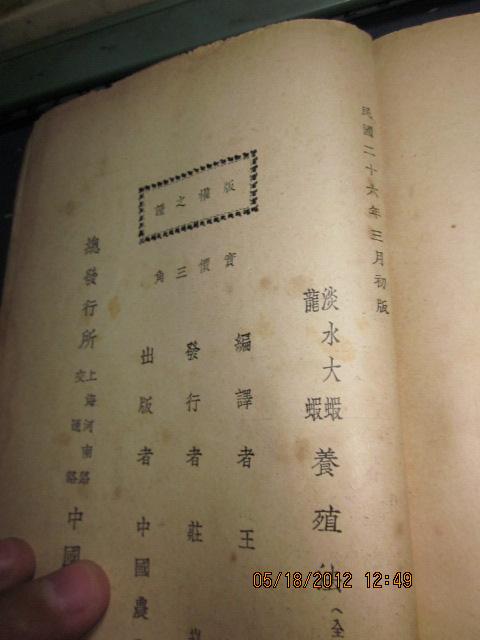 民國二十六年三月初版
淡水大蝦
龍蝦
養殖法（全
編譯者 王
發行者 莊
出版者 中國農
實價三角
版權之證
總發行所
上海河南路
交通路
中國
05/18/2012 12:49